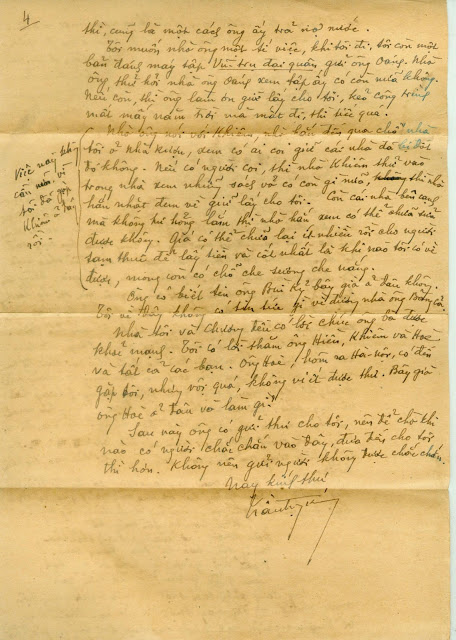 4
thì, cũng là một cách ông ấy trả nợ nước.
Tôi muốn nhờ ông một tí việc, khi tôi đi, tôi còn một
bản đáng máy tập Vũ-trụ đại quan gửi ông Oang. Nhờ
ông thử hỏi nhà ông Oang xem tập ấy có còn nữa không.
Nếu còn, thì ông làm ơn giữ lấy cho tôi, kẻo công trình
mất mấy năm trời mà mất đi, thì tiếc quá.
Nhờ ông nói với Khiêm nhà tôi đến qua chỗ nhà
tôi ở Nhà Rượu, xem có ai coi giữ các nhà đã bị đốt
đó không. Nếu có người coi, thì nhờ Khiêm thử vào
trong nhà xem những sách vở có còn gì nữa, thì nhờ
hắn nhặt đem về giữ lấy cho tôi. Còn cái nhà bên cạnh
mà không hư hỏng lắm thì nhờ hắn xem có thể chữa sửa
được không. Giá có thể chữa lại ít nhiều rồi cho người
tam thuê để lấy tiền và cốt nhất là khi nào tôi có về
được, mong còn có chỗ che sương che nắng.
Việc này
cần nên, vì
tôi đã gặp
Khiêm ở đây
rồi.
Ông có biết tin ông Bùi Kỷ bây giờ ở đâu không.
Tôi về đây không có tin tức gì về đường nhà ông Bảng cả.
Nhà tôi và Chương đều có lời chúc ông bà được
khoẻ mạnh. Tôi có lời thăm ông Hiến, Khiêm và Hoè
và tất cả các bạn. Ông Hoè hôm ra Hà-nội, có đến
gặp tôi, nhưng vội quá, không viết được thư. Bây giờ
ông Hoè ở đâu và làm gì?
Sau này ông có gửi thư cho tôi, nên để chờ khi
nào có người chắc chắn vào đây, đưa đến cho tôi
thì hơn. Không nên gửi người không được chắc chắn.
Nay kính thư